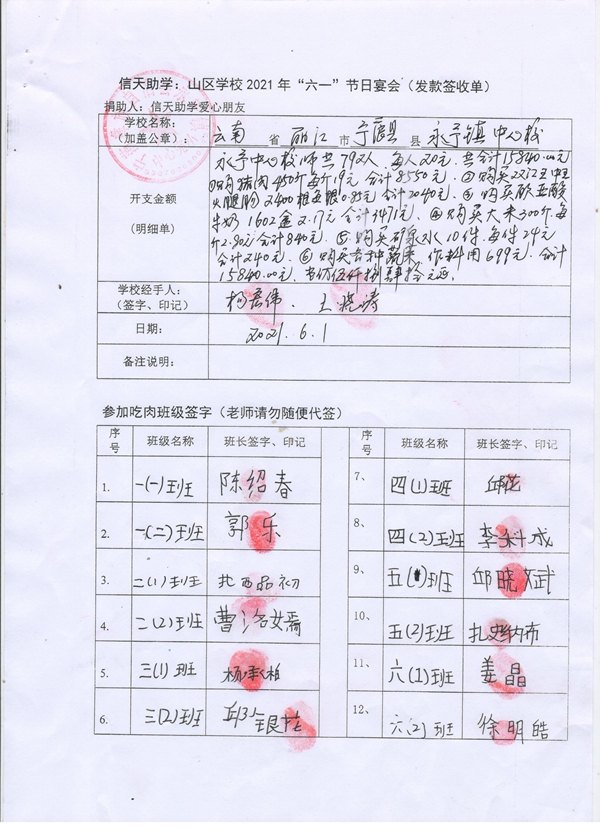 信天助学：山区学校2021年“六一”节日宴会（发款签收单）
捐助人：信天助学爱心朋友
学校名称：
（加盖公章）：
云南 省 丽江 市 宁蒗县 县 永宁镇中心校
开支金额
（明细单）
永宁中心校师共792人，每人20元，共合计15840.00元
购猪肉450斤每斤19元合计8550元，②购买
火腿肠2400根每根0.85元合计2040元，③购买欧亚酸
牛奶1602盒2.17元合计3471元，④购买大米300斤，每
斤2.80元合计840元，⑤购买矿泉水10件，每件24元
合计240元，⑥购买各种蔬菜，作料用699元，合计
15840.00元，
学校经手人：
（签字、印记）
王晓涛
日期：
2021.6.1
备注说明：
参加吃肉班级签字（老师请勿随便代签）
序号 班级名称 班长签字、印记
1. 一(一)班 陈绍春
2. 一(二)班 郭乐
3. 二(1)班 北西品初
4. 二(2)班 曹
5. 三(1)班 杨承柏
6. 三(2)班 邱银桂
序号 班级名称 班长签字、印记
7、 四(1)班 邱花
8、 四(2)班 李科成
9、 五(1)班 邱晓文武
10、 五(2)班 扎史纳布
11、 六(1)班 姜晶
12、 六(2)班 徐明皓